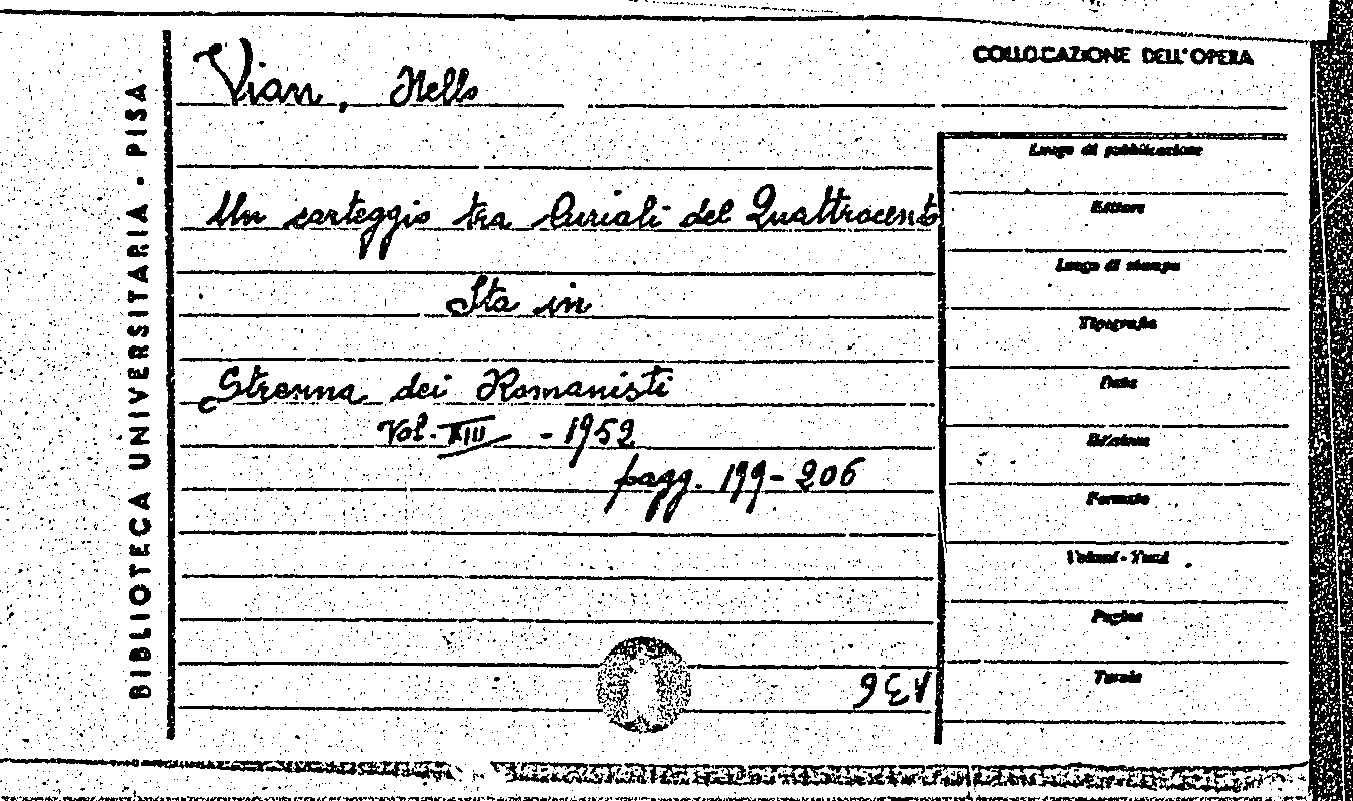 BIBLIOTECA UNIVERSITARIA - PISA
Vian, Nello
Un carteggio tra Curiali del Quattrocento
Sta in
Strenna dei Romanisti
Vol. XIII - 1952
pagg. 199-206
COLLOCAZIONE DELL'OPERA
Luogo di pubblicazione
Editore
Luogo di stampa
Tipografia
Data
Edizione
Formato
Volumi - Tomi
Pagine
Tavole